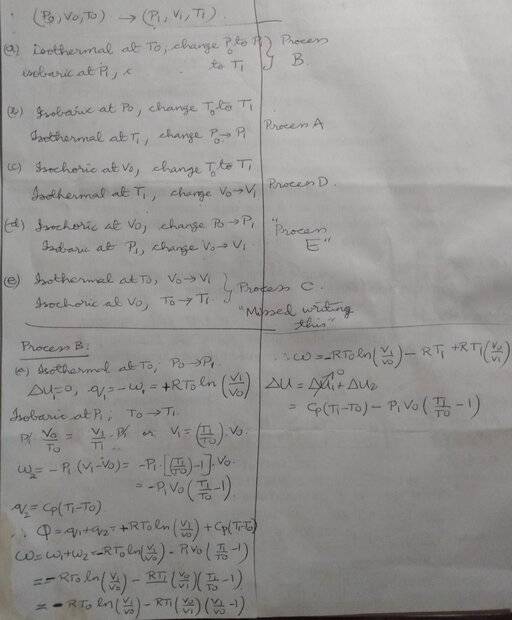 (P₀, V₀, T₀) → (P₁, V₁, T₁).
(a) Isothermal at T₀, change P₀ to P₁ } Process
isobaric at P₁, to T₁ B.
(b) Isobaric at P₀, change T₀ to T₁
Isothermal at T₁, change P₀→P₁ Process A
(c) Isochoric at V₀, change T₀ to T₁
Isothermal at T₁, change V₀→V₁ Process D.
(d) Isochoric at V₀, change P₀→P₁ "Process
Isobaric at P₁, change V₀→V₁. E"
(e) Isothermal at T₀, V₀→V₁ } Process C.
Isochoric at V₀, T₀→T₁. "Missed writing
this"
Process B:
(a) Isothermal at T₀, P₀→P₁.
ΔU₁=0, q₁=-w₁=+RT₀ln(V₁/V₀)
Isobaric at P₁, T₀→T₁.
P₁ V₀/T₀ = V₁/T₁ · P₁ or V₁=(T₁/T₀)·V₀
w₂=-P₁(V₁-V₀)= -P₁·[(T₁/T₀)-1]·V₀
= -P₁V₀(T₁/T₀-1).
q₂=Cp(T₁-T₀)
∴ Q=q₁+q₂=+RT₀ln(V₁/V₀)+Cp(T₁-T₀)
w=w₁+w₂=-RT₀ln(V₁/V₀)-P₁V₀(T₁/T₀-1)
=-RT₀ln(V₁/V₀)-RT₁(V₀/V₁)(T₁/T₀-1)
=-RT₀ln(V₁/V₀)-RT₁(V₀/V₁)(V₁/V₀-1)
∴ w=-RT₀ln(V₁/V₀)-RT₁+RT₁(V₀/V₁)
ΔU = ΔU₁⁰+ΔU₂
= Cp(T₁-T₀)-P₁V₀(T₁/T₀-1)